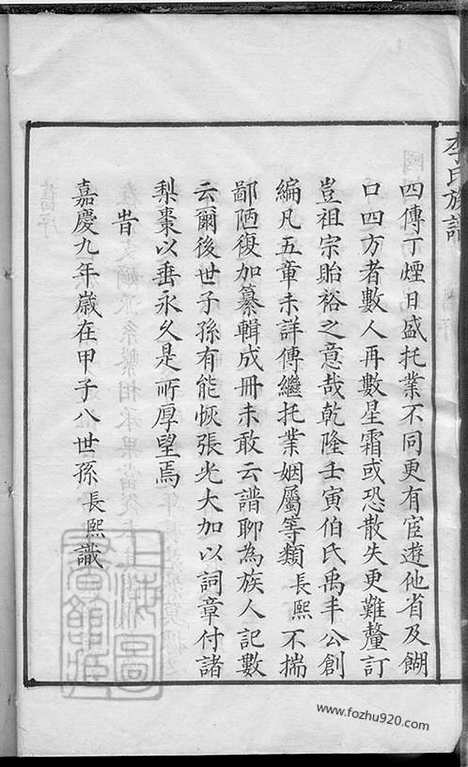 李氏族譜
四傳丁煙日盛托業不同更有宦遊他省及餬
口四方者數人再數星霜或恐散失更難釐訂
豈祖宗貽裕之意哉乾隆壬寅伯氏禹丰公創
編凡五章未詳傳繼托業姻屬等類 長熙 不揣
鄙陋復加纂輯成冊未敢云譜聊為族人記數
云爾後世子孫有能恢張光大加以詞章付諸
梨棗以垂永久是所厚望焉
旹
嘉慶九年歲在甲子八世孫 長熙 識
上海圖書館藏
www.fozhu920.com